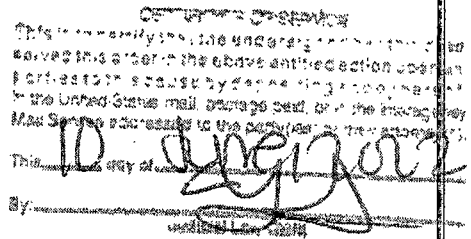 CERTIFICATE OF SERVICE
This is to certify that the undersigned has this day
served this order in the above entitled action upon all
parties to this cause by depositing a copy hereof
in the United States mail, postage paid, or in the interagency
Mail Service addressed to the party(ies) or their attorney(s).
This 10 day of June, 2022
By:
Judicial Law Clerk